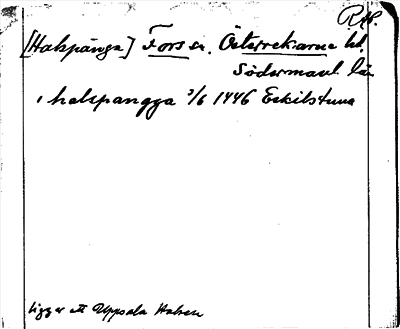 RAP.
[Halspänga] Fors sn. Österrekarne hd.
Södermanl. län
i halspangga 3/6 1446 Eskilstuna
ligger ett Uppsala